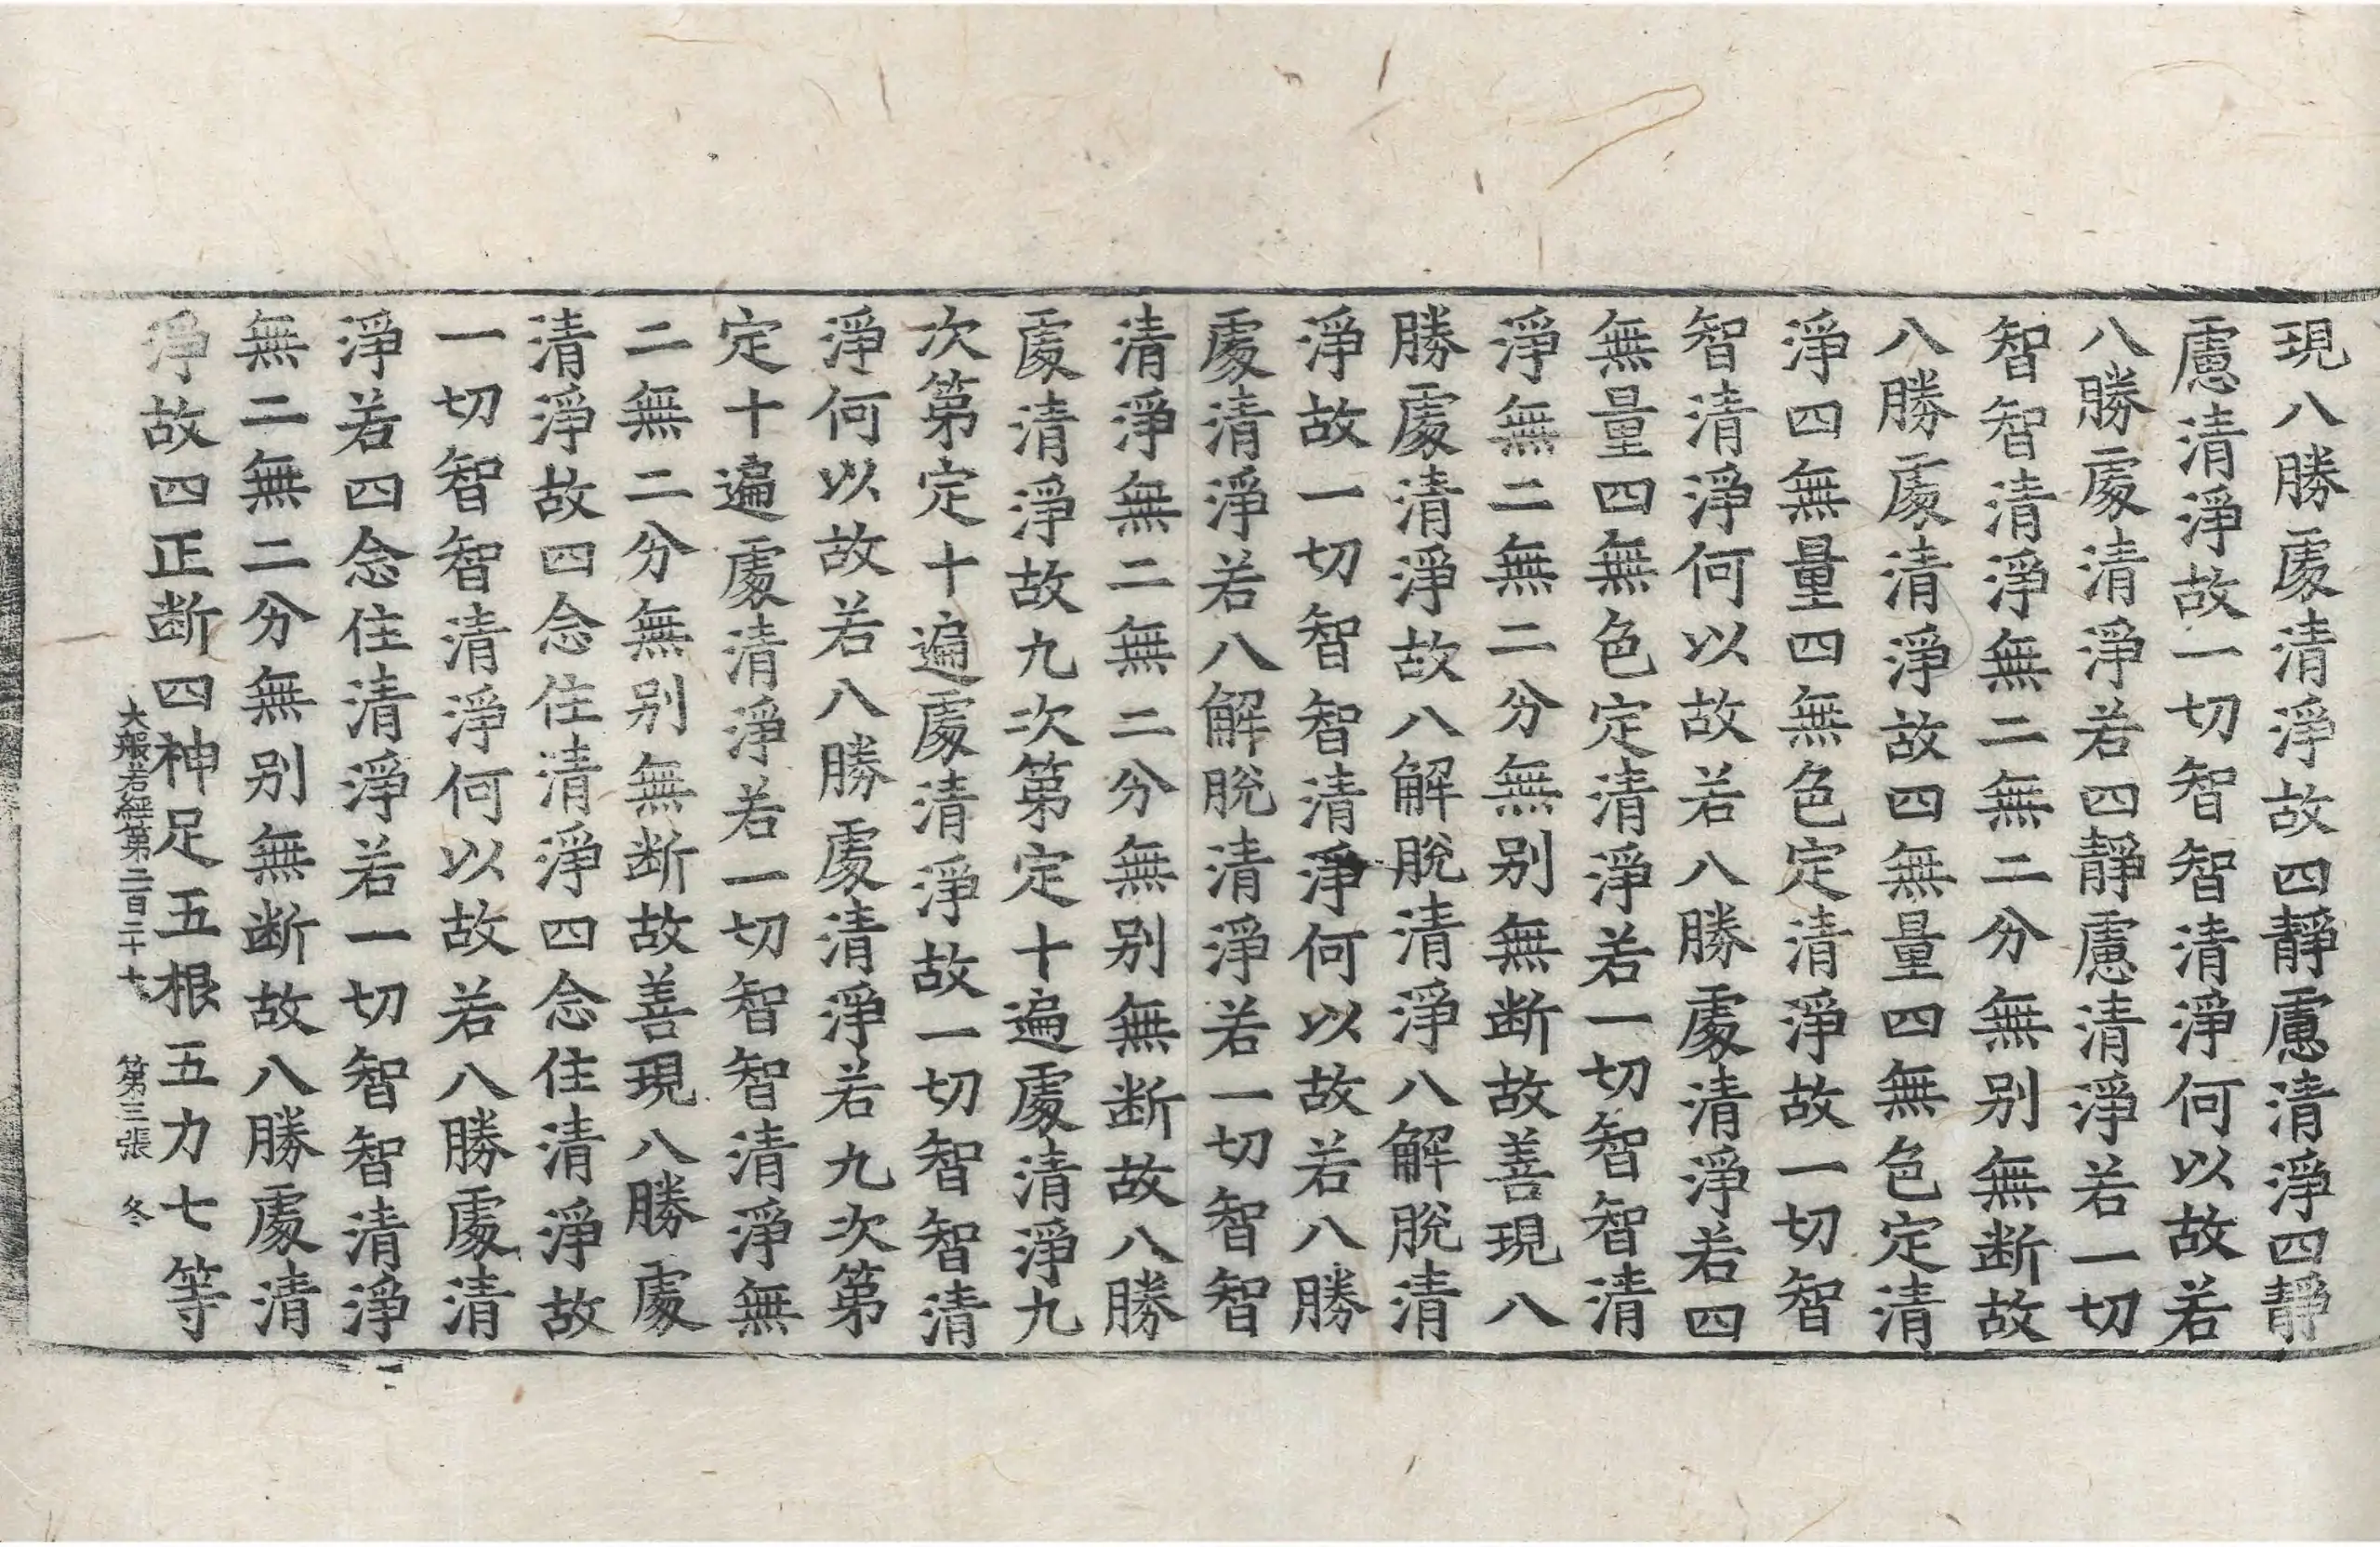 現八勝處清淨故四靜慮清淨四靜
慮清淨故一切智智清淨何以故若
八勝處清淨若四靜慮清淨若一切
智智清淨無二無二分無别無断故
八勝處清淨故四無量四無色定清
淨四無量四無色定清淨故一切智
智清淨何以故若八勝處清淨若四
無量四無色定清淨若一切智智清
淨無二無二分無别無断故善現八
勝處清淨故八解脫清淨八解脫清
淨故一切智智清淨何以故若八勝
處清淨若八解脫清淨若一切智智
清淨無二無二分無别無断故八勝
處清淨故九次第定十遍處清淨九
次第定十遍處清淨故一切智智清
淨何以故若八勝處清淨若九次第
定十遍處清淨若一切智智清淨無
二無二分無别無断故善現八勝處
清淨故四念住清淨四念住清淨故
一切智智清淨何以故若八勝處清
淨若四念住清淨若一切智智清淨
無二無二分無别無断故八勝處清
淨故四正断四神足五根五力七等
大般若經第二百二十七 第三張 冬